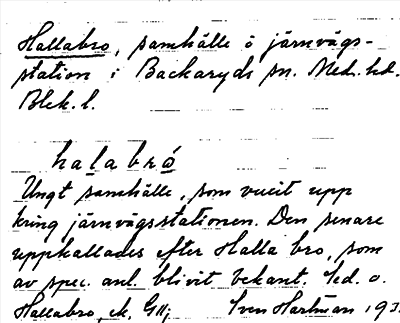 Hallabro, samhälle o järnvägs-
station i Backaryds sn. Med. hd.
Blek. l.
halabró
Ungt samhälle, som vuxit upp
kring järnvägsstationen. Den senare
uppkallades efter Halla bro, som
av spec. anl. blivit bekant. Led. o.
Hallabro, ek. G11;
Sven Hartman 193.